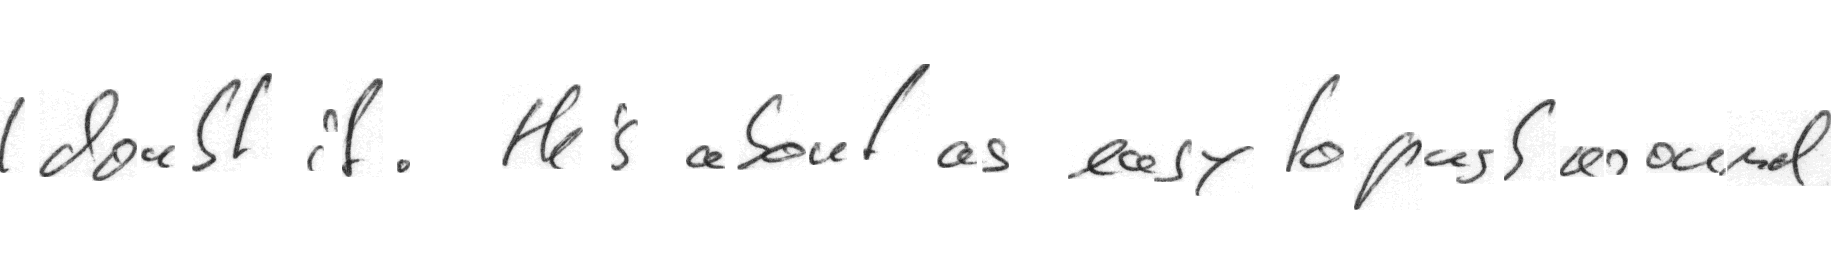 I doubt it. He's about as easy to push around